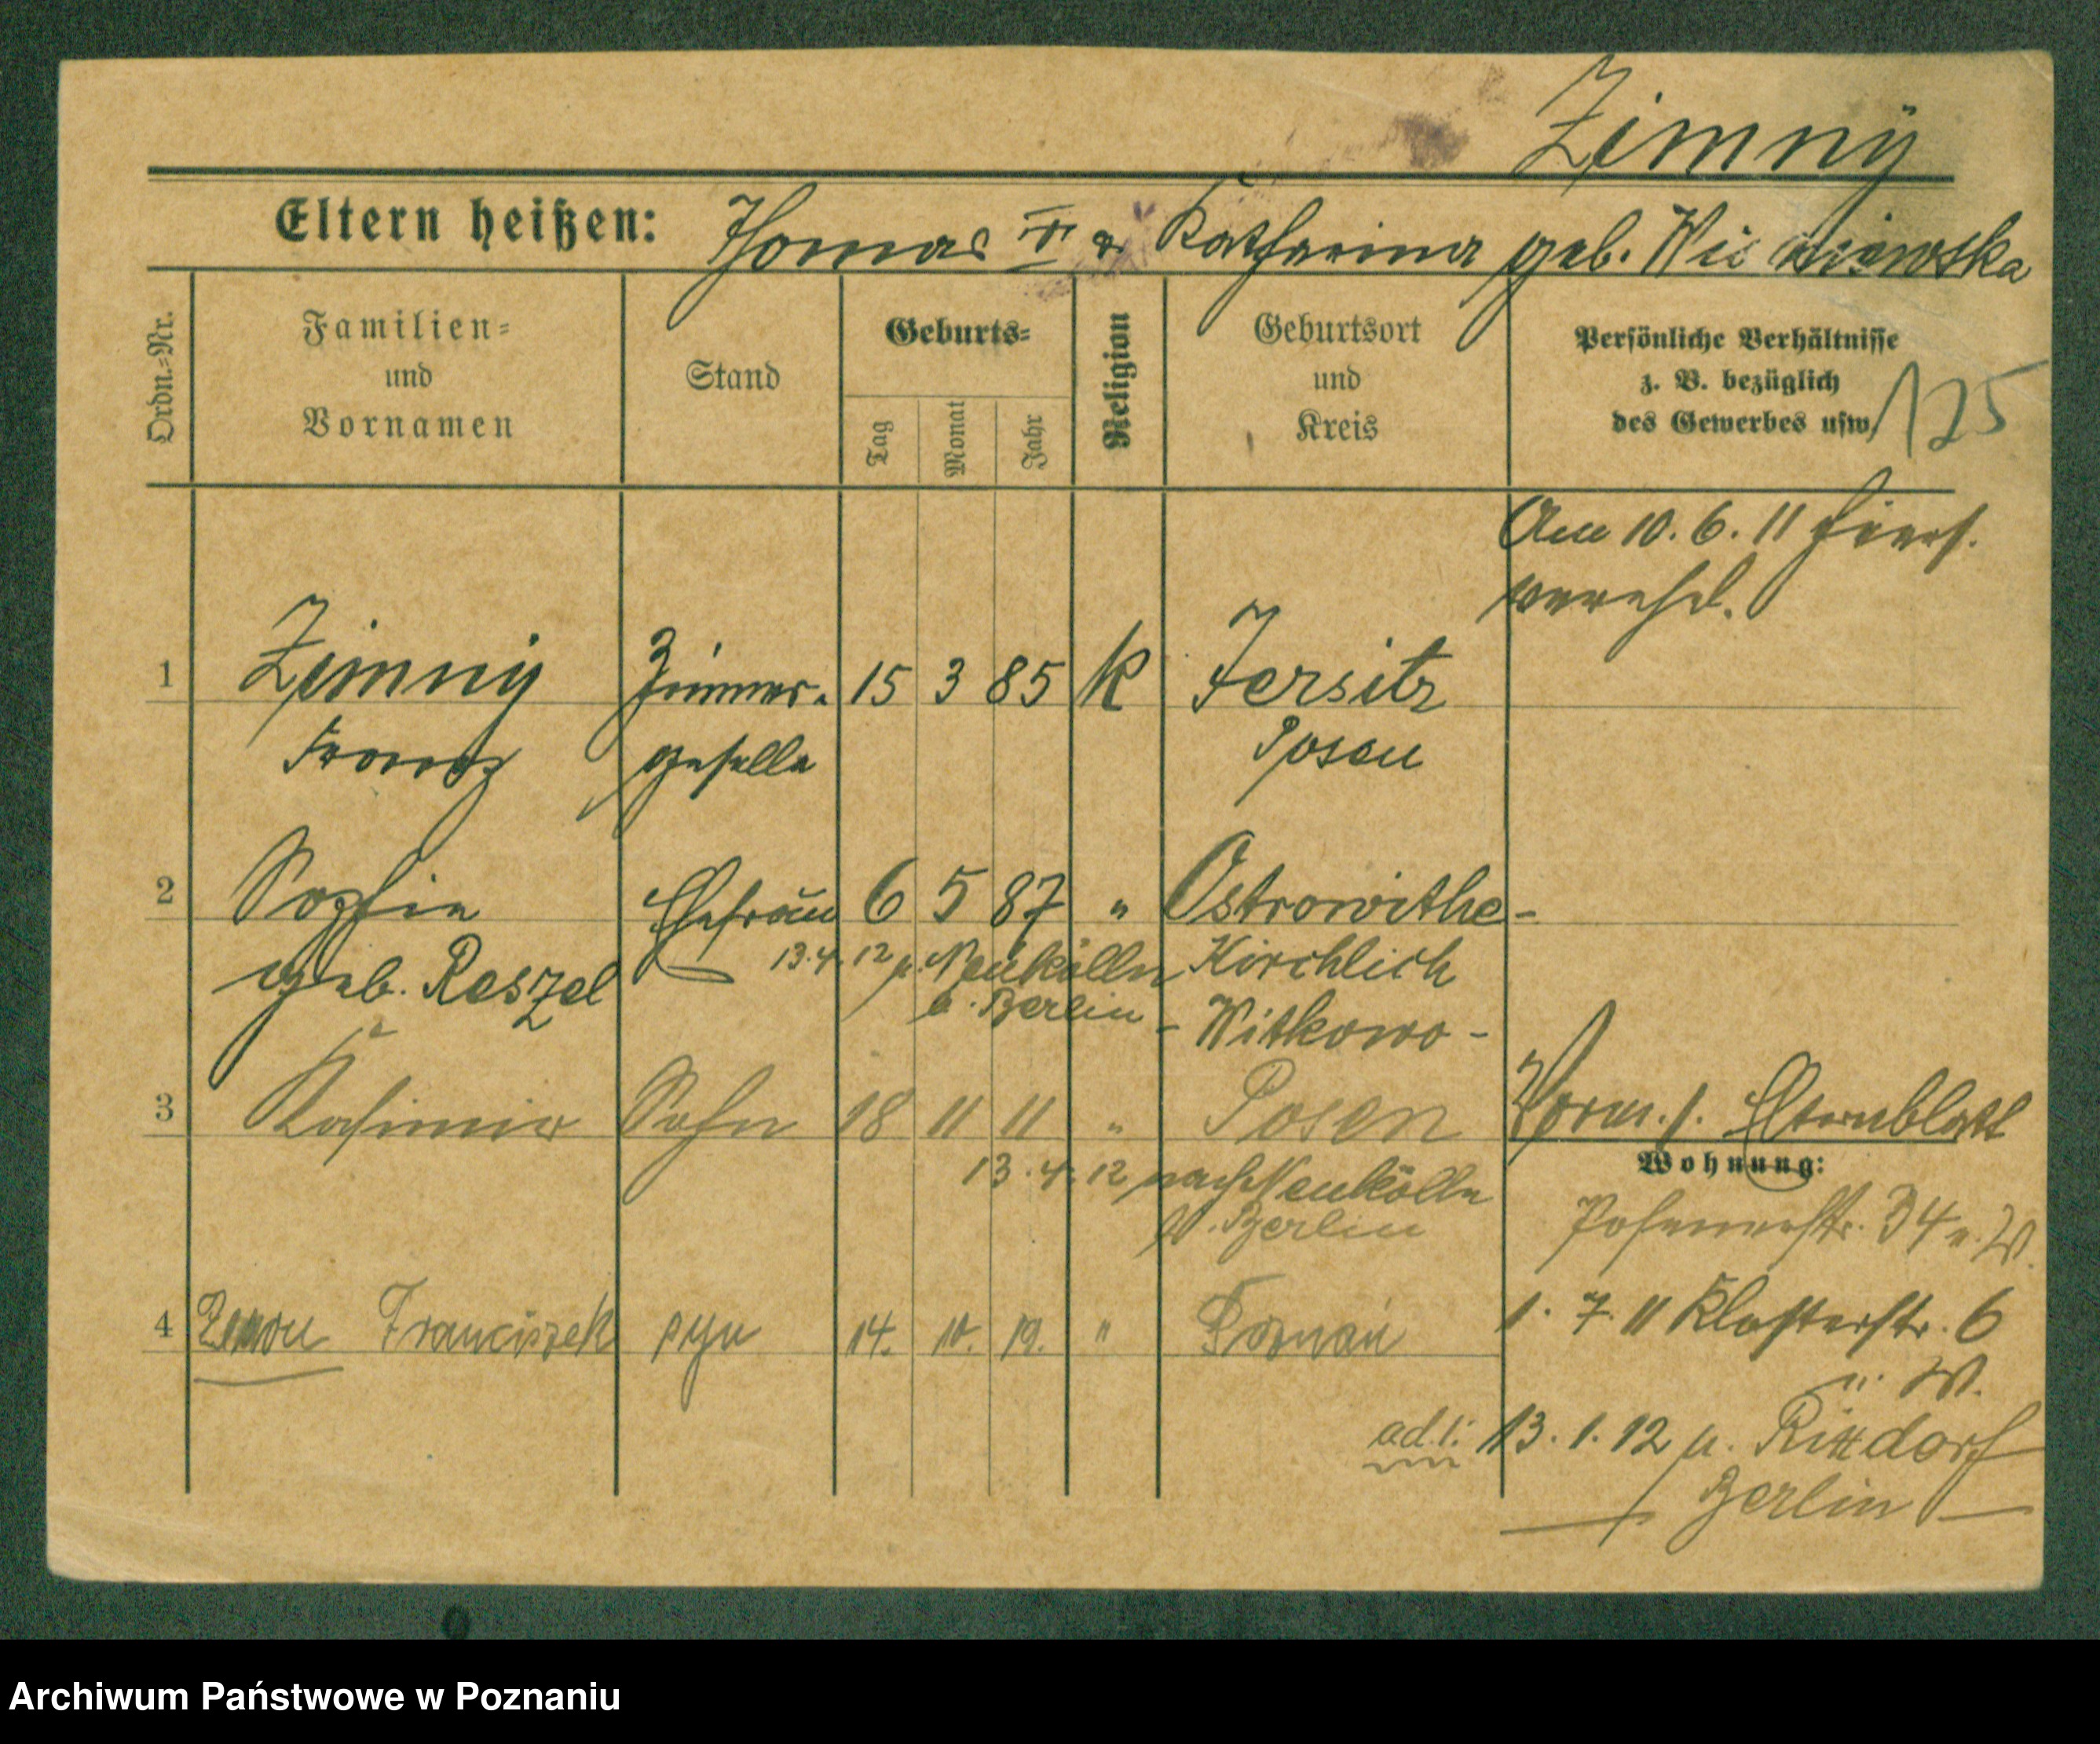 Zimny
Eltern heißen: Thomas & Katharina geb. Wisniewska
Ordn.=Nr.
Familien=
und
Vornamen
Stand
Geburts=
Tag
Monat
Jahr
Religion
Geburtsort
und
Kreis
Persönliche Verhältnisse
z. B. bezüglich
des Gewerbes usw.
125
Am 10. 6. 11 hiers.
verehel.
1 Zimny Zimmer- 15 3 85 K Jersitz
Franz geselle Posen
2 Sophie Ehefrau 6 5 87 " Ostrowitke-
geb. Reszel 13.4.12 n. Neukölln Kirchlich
b. Berlin - Witkowo -
3 Kasimir Sohn 18 11 11 " Posen
13.4.12 nach Neukölln
b. Berlin
Vorm. s. Elternblatt
Wohnung:
Posenerstr. 34
1. 7. 11 Klosterstr. 6
4 Franciszek syn 14. 10. 19. " Poznań
ad.1: 13. 1. 12 n. Rixdorf
Berlin
Archiwum Państwowe w Poznaniu